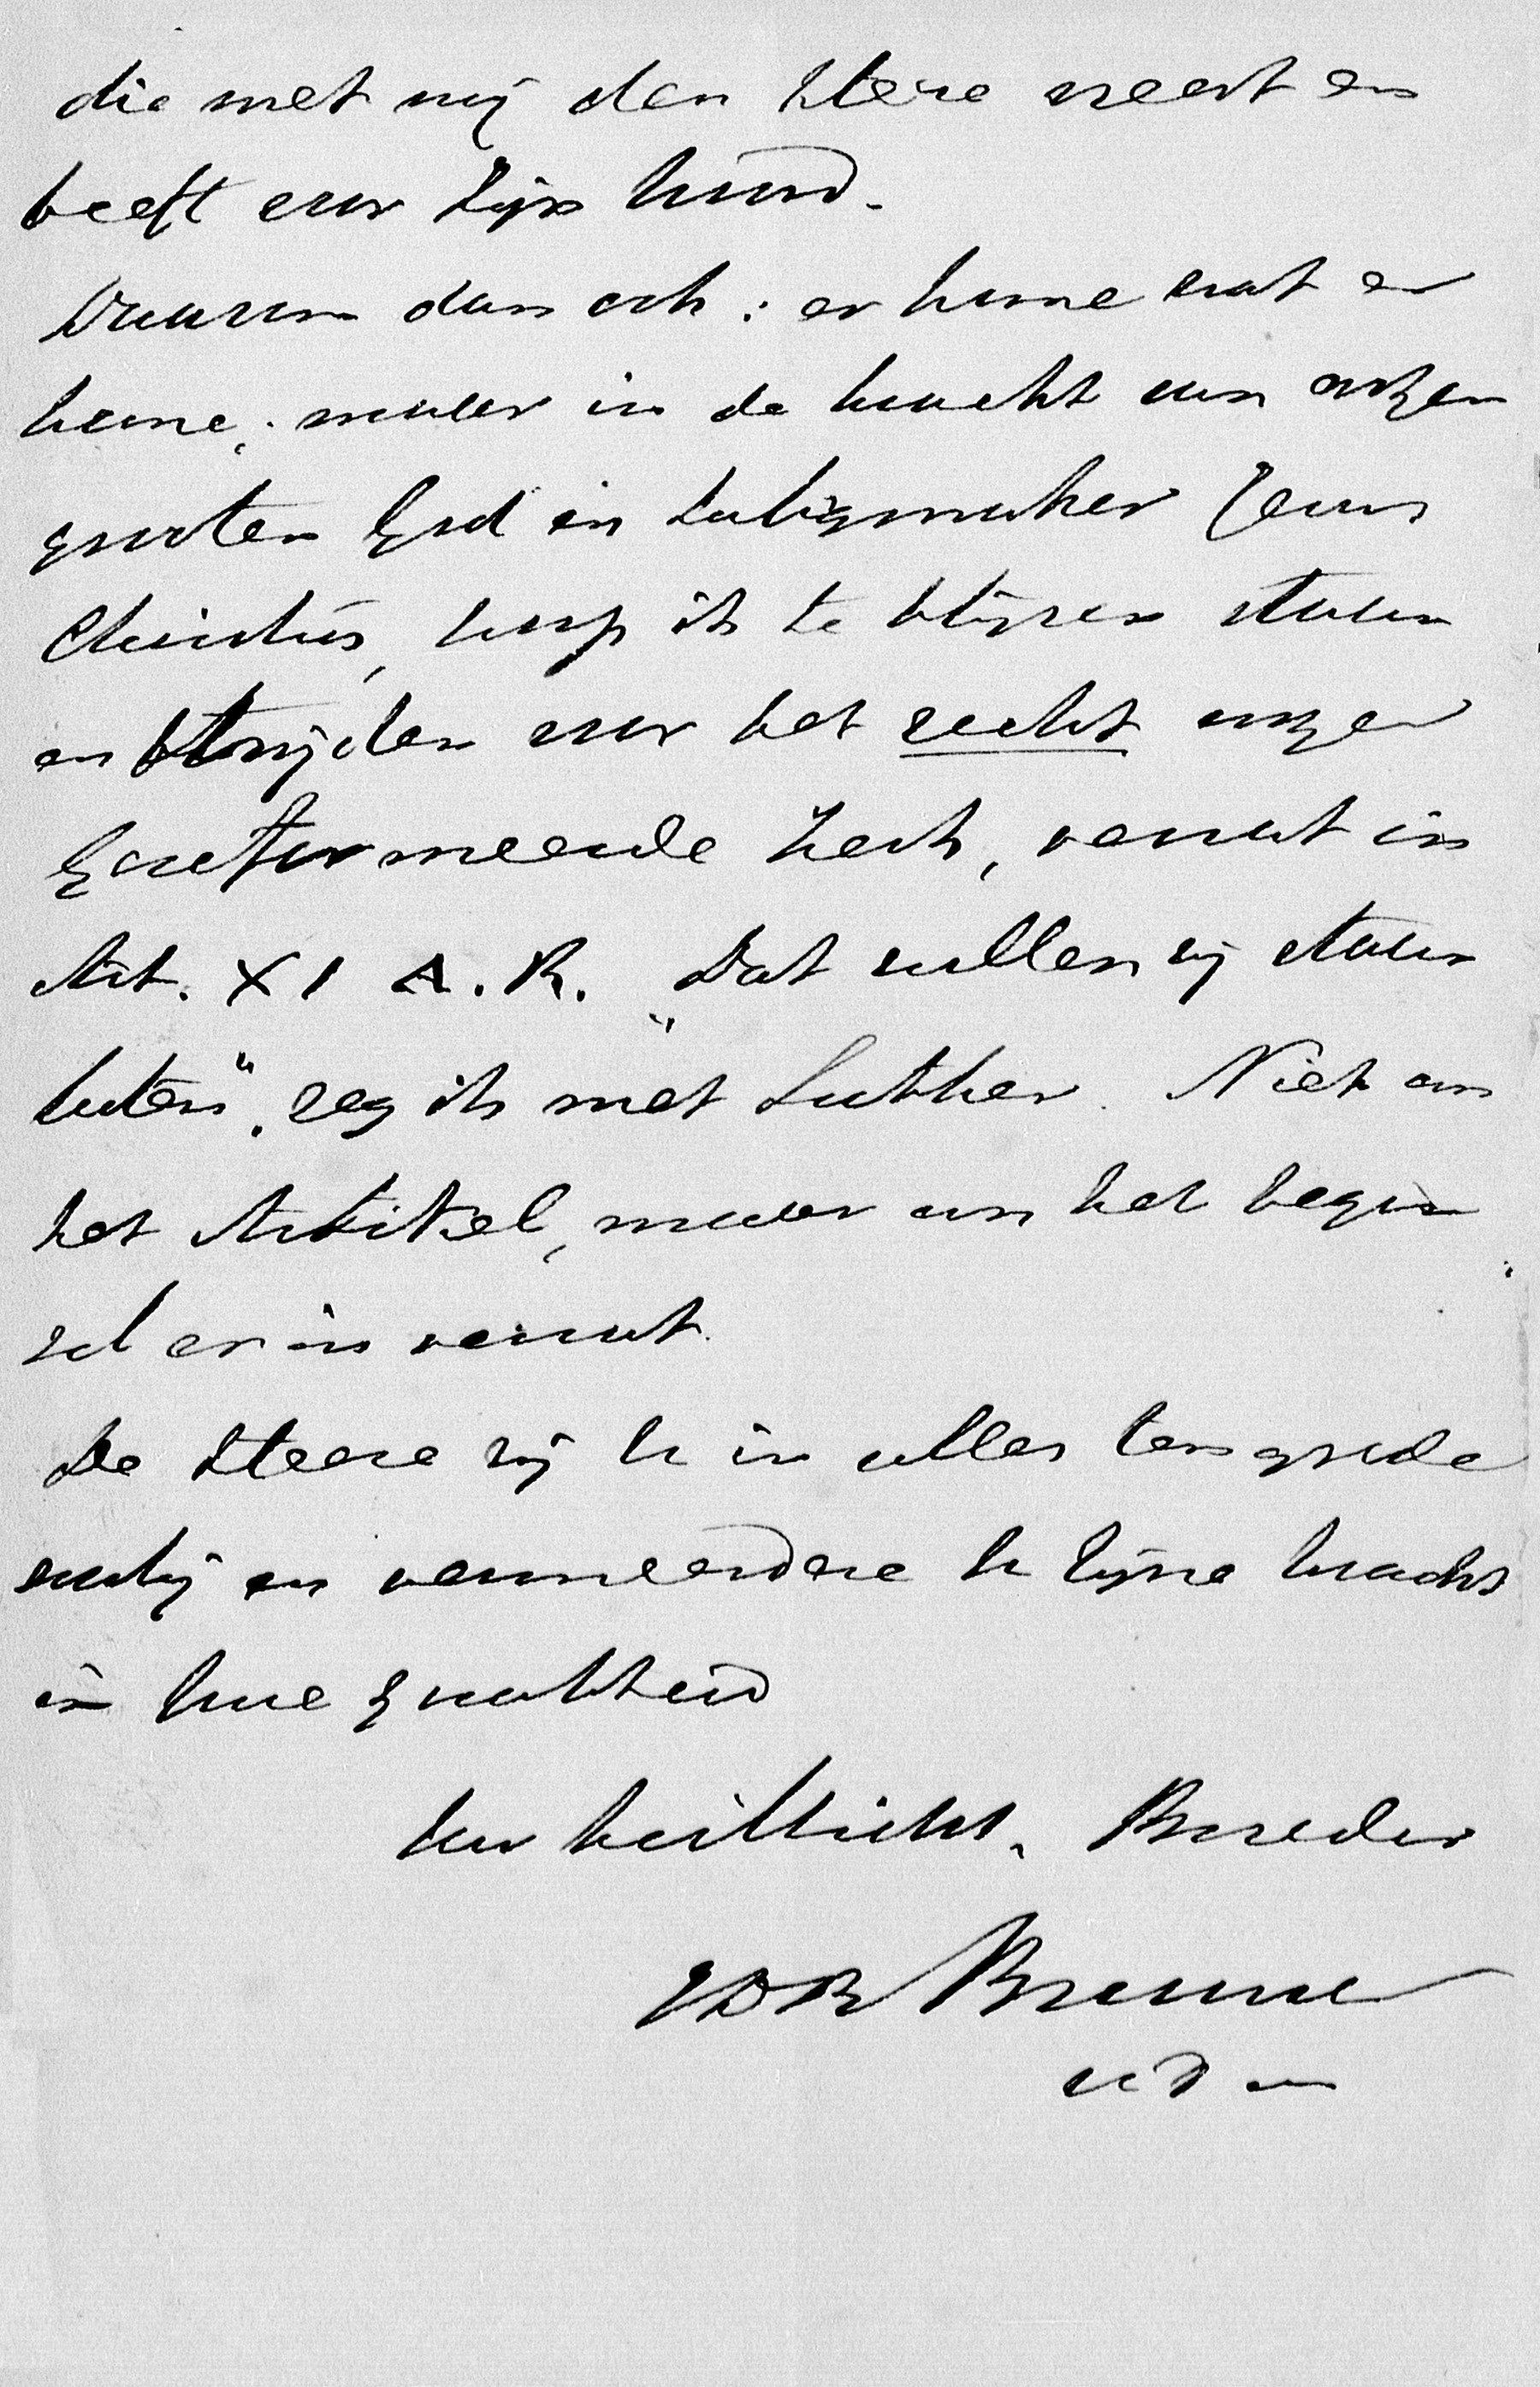 die met mij den Heere vreest en
beeft voor Zijn woord.
Waarom dan ook: er kome wat er
kome; maar in de kracht van onzen
grooten God en Zaligmaker Jezus
Christus, hoop ik te blijven staan
en strijden voor het recht onzer
Gereformeerde Kerk, vervat in
Art. XI A. R. „Dat zullen zij staan
laten", zeg ik met Luther. Niet om
het Artikel, maar om het begin
sel er in vervat.
De Heere zij U in alles tengoede
nabij en vermeerdere U Zijne kracht
in Uwe zwakheid
Uw heilbidd. Broeder
Brumme